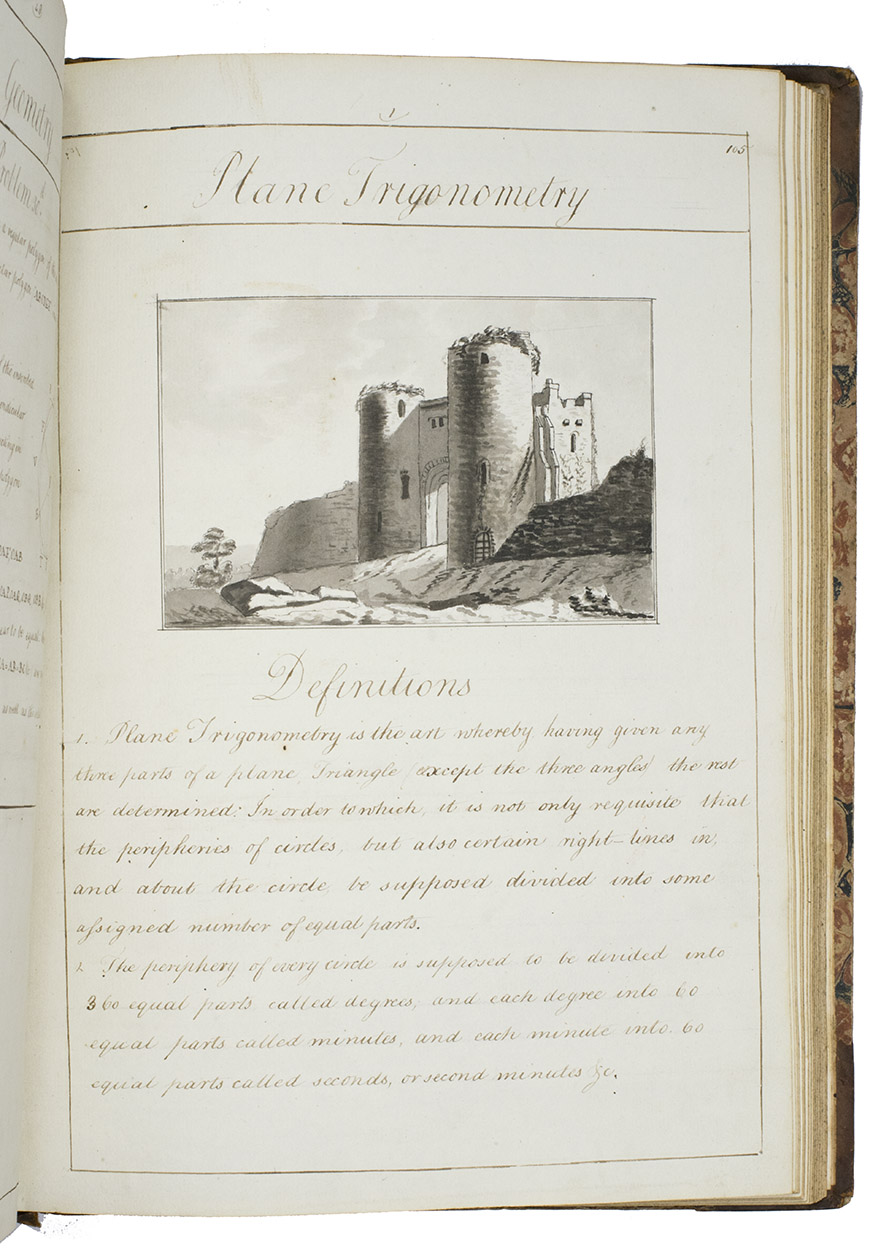 Geometry
1
105
Plane Trigonometry
Definitions
1. Plane Trigonometry is the art whereby having given any
three parts of a plane Triangle (except the three angles) the rest
are determined: In order to which, it is not only requisite that
the peripheries of circles, but also certain right-lines in,
and about the circle, be supposed divided into some
assigned number of equal parts.
2. The periphery of every circle is supposed to be divided into
360 equal parts called degrees; and each degree into 60
equal parts called minutes, and each minute into 60
equal parts called seconds, or second minutes &c.